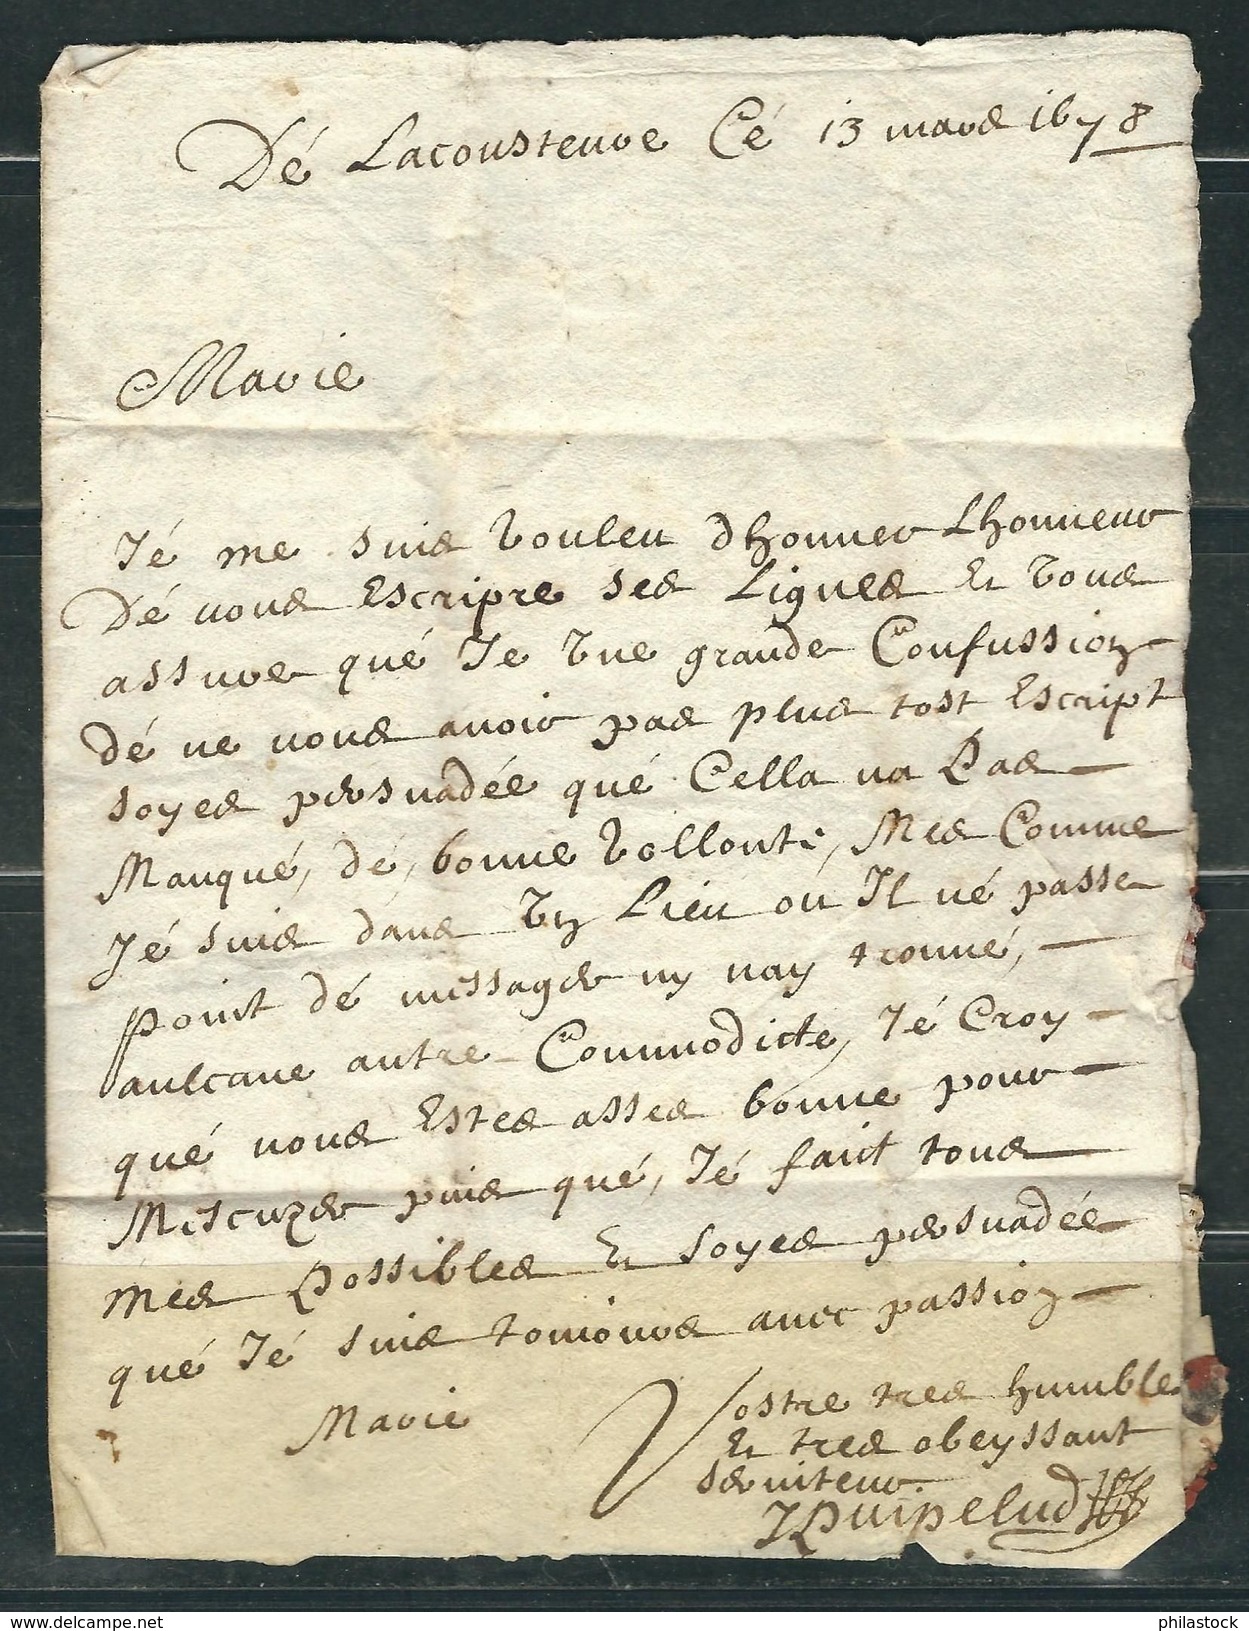 Dé Lacousteure Cé 13 mars 1678
Marie
Jé me suis vouleu dhonner Lhonneur
Dé vous Escripre ses Lignes Et vous
assure qué Je vne grande Confussion
dé ne vous avoir pas plus tost Escript
soyes persuadée qué Cella na Pas
Manqué, dé, bonne vollonte, Mes Comme
Jé suis dans vn Lieu ou Il né passe
point dé messager ny nay trouué,
aulcune autre Commodicte, Jé Croy
qué vous Estes asses bonne pour
Mescuzer puis qué, Jé faict tous
mes Possibles Et soyes persuadée
qué Jé suis touiours auec passion
Marie
Vostre tres humble
Et tres obeyssant
seruiteur
JPuipelud
philastock